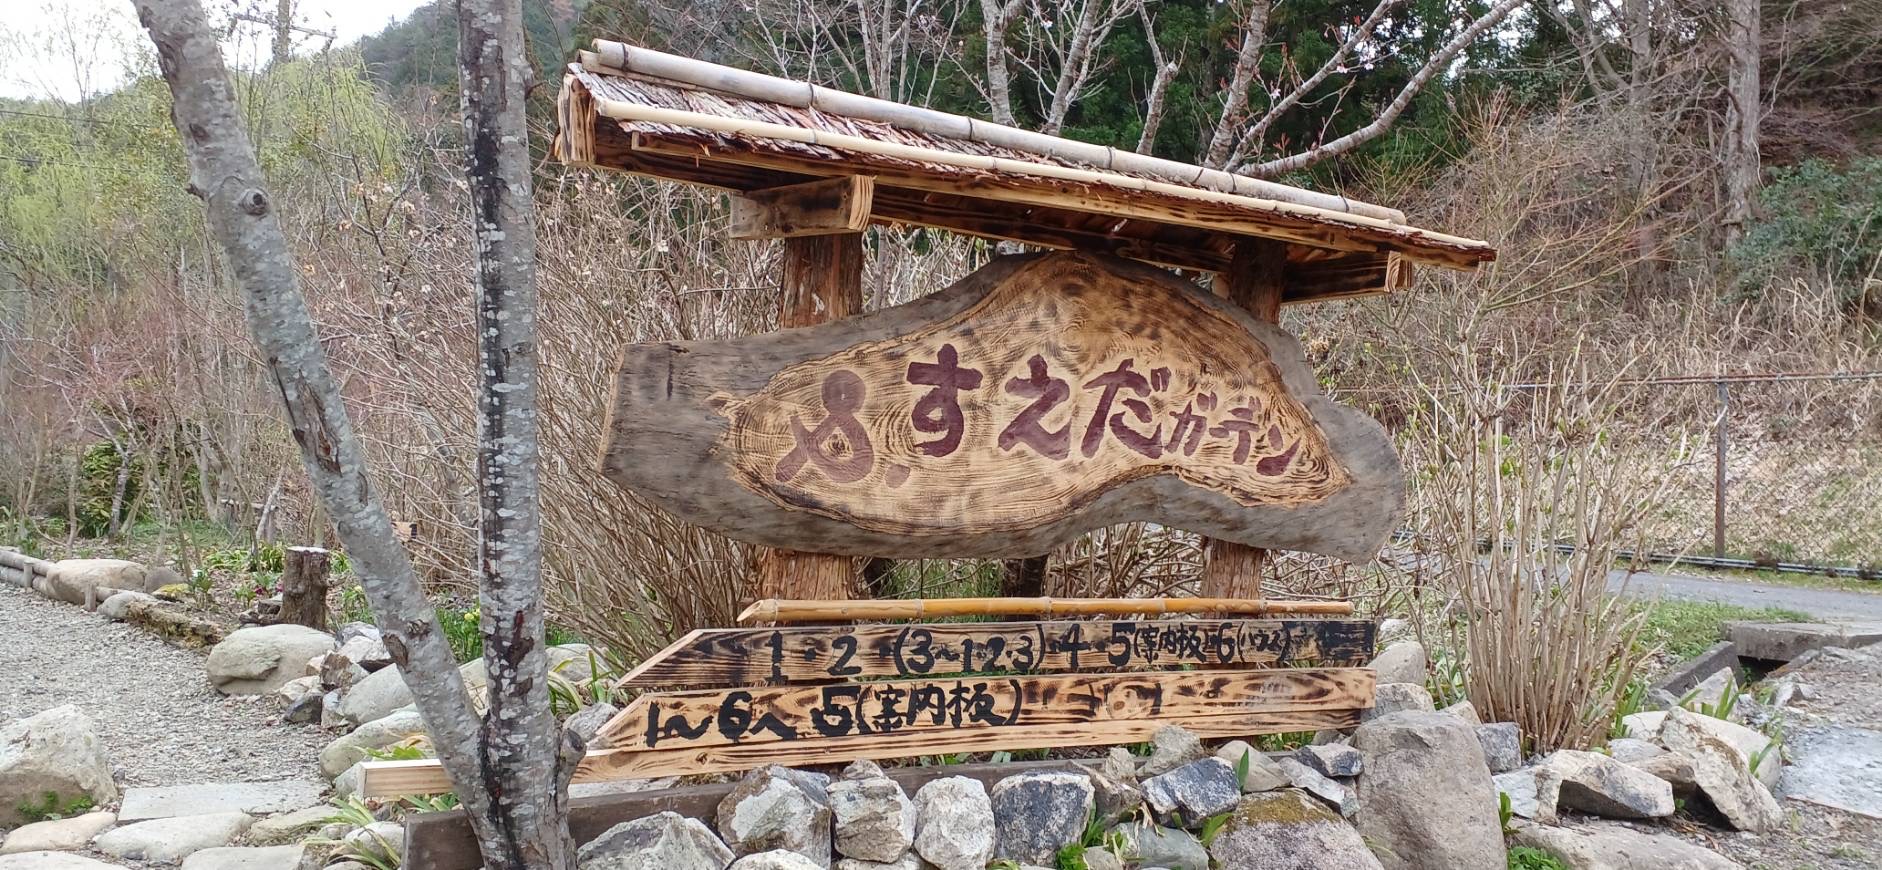 &.すえだガーデン
1・2・(3~1・2・3)4・5(案内板)・6(ハウス)
1~6へ 5(案内板)